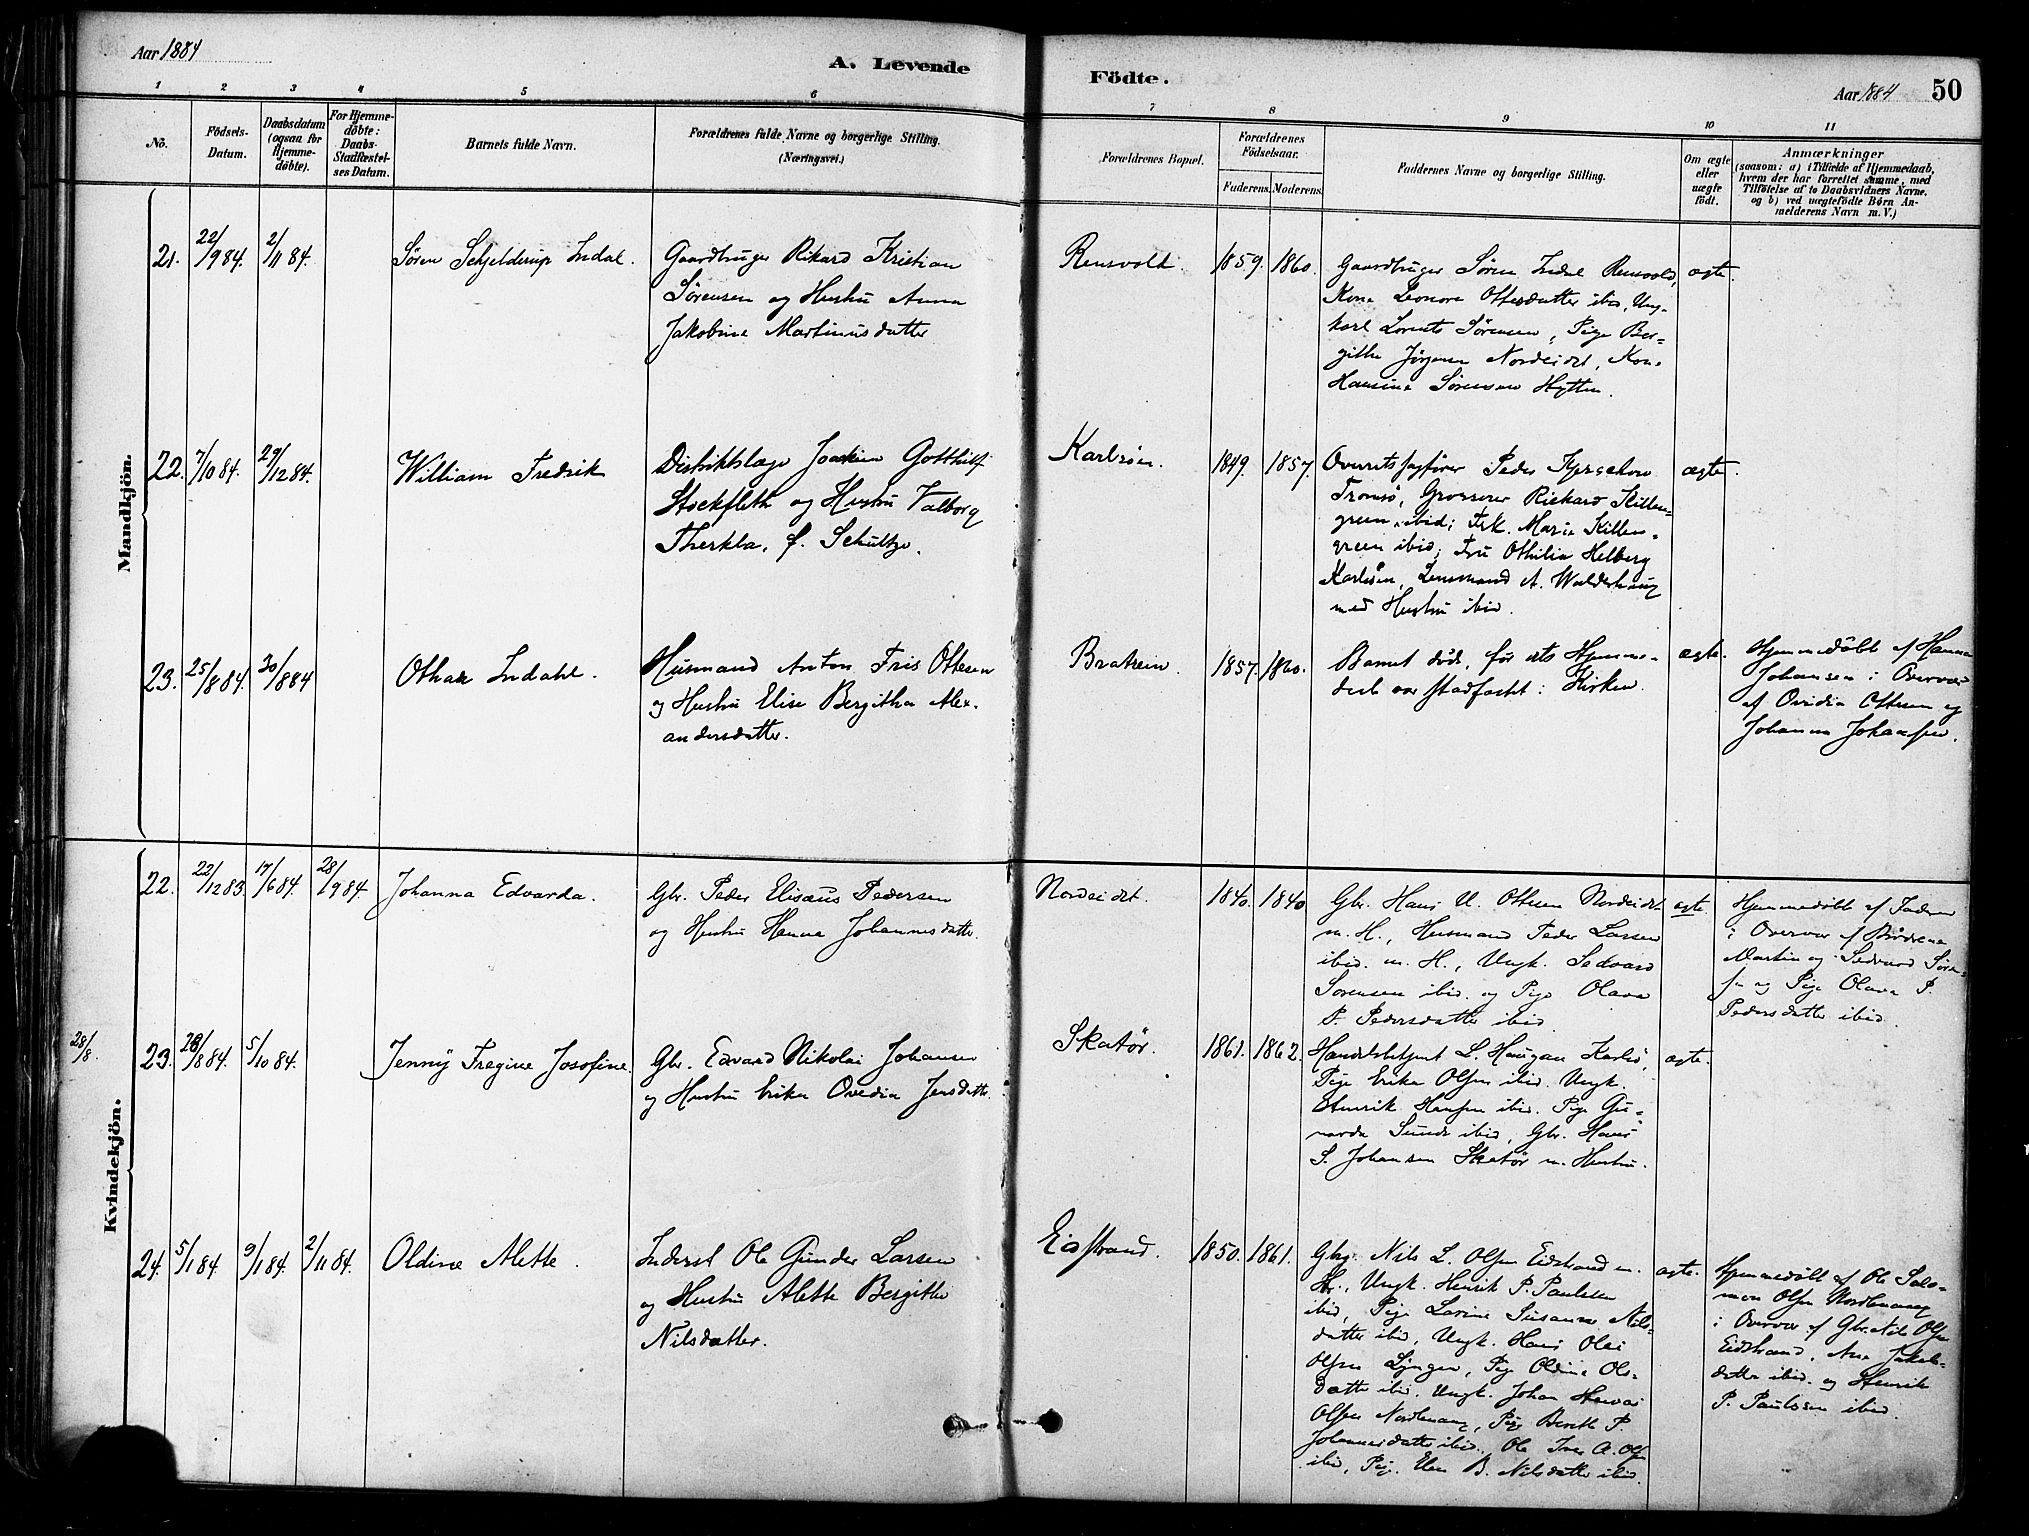 Aar 1884
A. Levende
Födte.
Aar 1884
50
1 2 3 4 5 6 7 8 9 10 11
No.
Födsels-
Datum.
Daabsdatum
(ogsaa for
Hjemme-
döbte).
For Hjemme-
döbte:
Daabs-
Stadfæstel-
ses Datum.
Barnets fulde Navn.
Forældrenes fulde Navne og borgerlige Stilling.
(Næringsvei.)
Forældrenes Bopæl.
Forældrenes
Födselsaar.
Faderens. Moderens.
Faddernes Navne og borgerlige Stilling.
Om ægte
eller
uægte
født.
Anmærkninger
(saasom: a) i Tilfælde af Hjemmedaab,
hvem der har forrettet samme, med
Tilföielse af to Daabsvidners Navne.
og b) ved uægtefödte Börn An-
melderens Navn m. V.)
Mandkjön.
21.
22/9 84.
2/11 84.
Søren Schjelderup Indal.
Gaardbruger Rikard Kristian
Sørensen og Hustru Anna
Jakobine Martinusdatter
Rensvold.
1859. 1860.
Gaardbruger Søren Indal Rensvold,
Kone Leonore Ottesdatter ibid, Ung-
karl Lorents Sørensen, Pige Ber-
githe Jørgensen Nordeidet, Kone
Hansine Sørensen Hytten.
ægte.
22.
7/10 84.
29/12 84.
William Fredrik
Distriktslæge Joakim Gotthilf
Stockfleth og Hustru Valborg
Therkla, f. Schultze.
Karlsøen.
1849. 1857.
Overretssagfører Peder
Tromsø, Grosserer Rickard Killen-
green ibid; Frk. Marie Killen-
green ibid; Fru Othilia Helberg
Karlsøen, Lensmand A. Walderhaug
med Hustru ibid.
ægte.
23.
25/8 84.
30/8 84
Othar Indahl.
Husmand Anton Fris Ottesen
og Hustru Elise Bergitha Alex-
andersdatter.
Bratrein
1857. 1860.
Barnet døde, før dets Hjemme-
daab var stadfæstet i Kirken.
ægte.
Hjemmedøbt af Hanna
Johansen i Overvær
af Ovidia Ottesen og
Johanna Johansen.
Kvindekjön.
22.
22/12 83.
17/6 84.
28/9 84.
Johanna Edvarda.
Gbr. Peder Elisæus Pedersen
og Hustru Hanna Johannesdatter.
Nordeidet.
1840. 1840
Gbr. Hans U. Ottesen Nordeidet
m. H., Husmand Peder Larsen
ibid. m. H., Ungk. Sedvard
Sørensen ibid. og Pige Olava
P. Pedersdatter ibid.
ægte.
Hjemmedøbt af Faderen
i Overvær af Brødrene
Martin og Sedvard Søren-
sen og Pige Olava P.
Pedersdatter ibid.
28/8.
23.
28/8 84.
5/10 84.
Jenny Fregine Josofine.
Gbr. Edvard Nikolai Johansen
og Hustru Erika Ovedia Jensdatter.
Skatør.
1861. 1862.
Handelsbetjent L. Haugan Karlsø,
Pige Erika Olsen ibid. Ungk.
Henrik Hansen ibid. Pige Gu-
narda Sunde ibid, Gbr. Hans
S. Johansen Skatør m. Hustru.
ægte.
24.
5/1 84.
9/1 84.
2/11 84.
Oldine Alette.
Inderst Ole Gunder Larsen
og Hustru Alette Bergitte
Nilsdatter.
Eidstrand.
1850. 1861.
Gbr. Nils L. Olsen Eidstrand m.
H., Ungk. Henrik P. Paulsen
ibid, Pige Larine Susanne Nils-
datter ibid, Ungk. Hans Olai
Olsen Lyngen, Pige Oldine Ols-
datter ibid. Ungk. Johan
Olsen Nordlenang, Pige Berethe P.
Johannesdatter ibid, Ole Iver A. Olsen
ibid, Pige Elen B. Nilsdatter ibid.
ægte.
Hjemmedøbt af Ole Salo-
mon Olsen Nordlenang
i Overvær af Gbr. Nils Olsen
Eidstrand, Ane Jakobs-
datter ibid. og Henrik
P. Paulssen ibid.